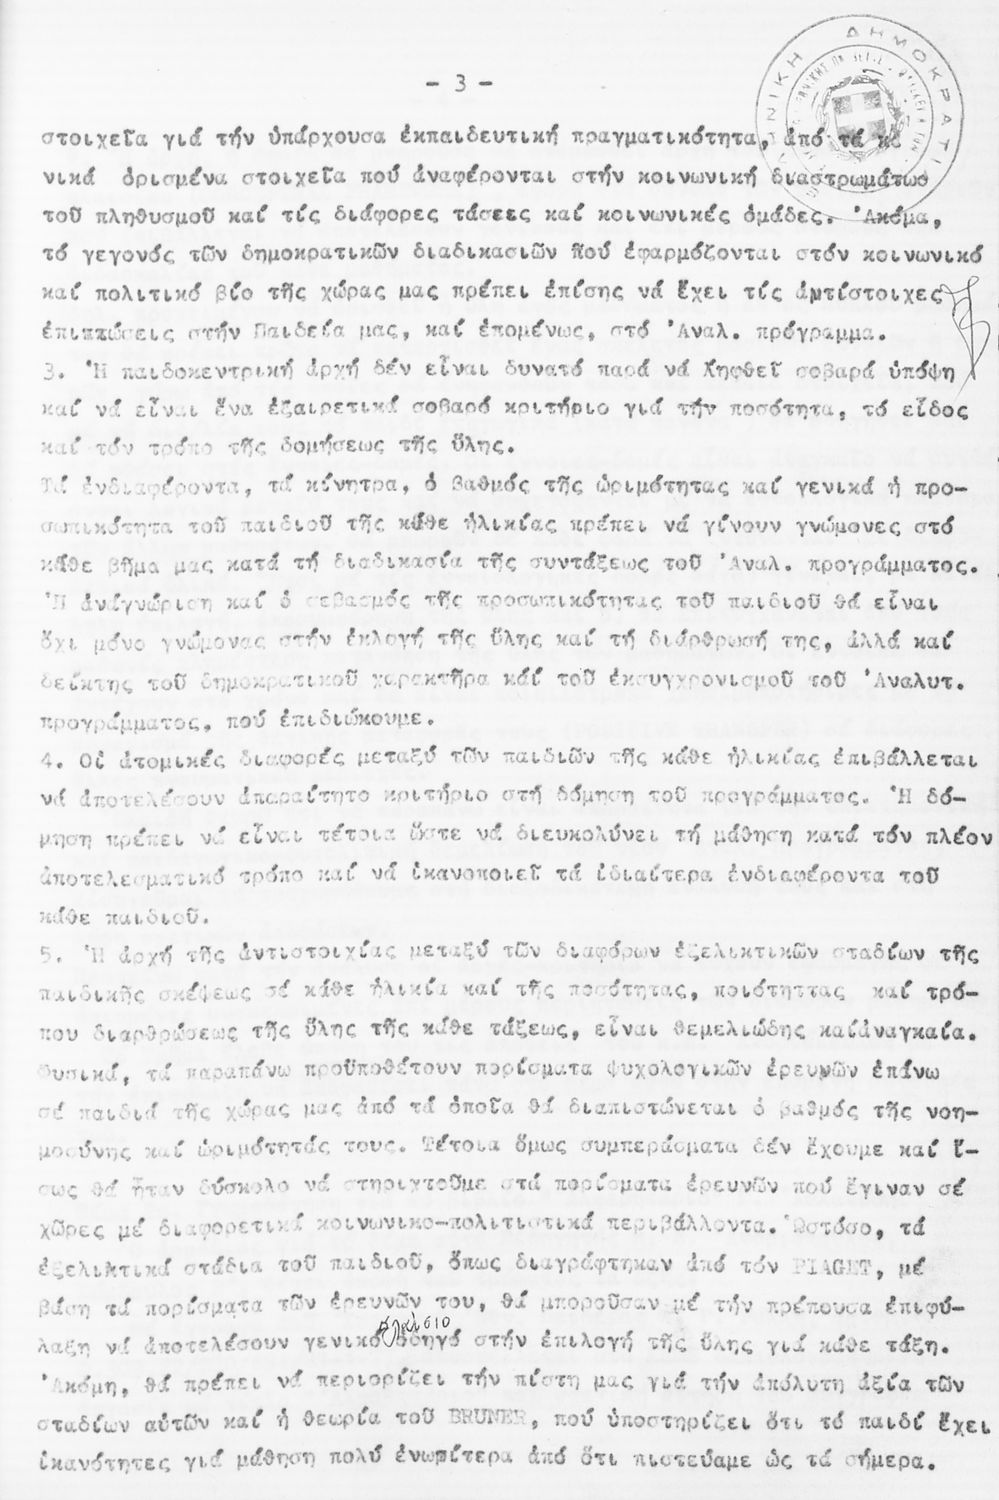 - 3 -
στοιχεῖα γιά τήν ὑπάρχουσα ἐκπαιδευτική πραγματικότητα, ἀπό τά κο
νικά ὁρισμένα στοιχεῖα πού ἀναφέρονται στήν κοινωνική διαστρωμάτωσ
τοῦ πληθυσμοῦ καί τίς διάφορες τάσεις καί κοινωνικές ὁμάδες. Ἀκόμα,
τό γεγονός τῶν δημοκρατικῶν διαδικασιῶν πού ἐφαρμόζονται στόν κοινωνικό
καί πολιτικό βίο τῆς χώρας μας πρέπει ἐπίσης νά ἔχει τίς ἀντίστοιχες
ἐπιπτώσεις στήν Παιδεία μας, καί ἑπομένως, στό Ἀναλ. πρόγραμμα.
3. Ἡ παιδοκεντρική ἀρχή δέν εἶναι δυνατό παρά νά ληφθεῖ σοβαρά ὑπόψη
καί νά εἶναι ἕνα ἐξαιρετικά σοβαρό κριτήριο γιά τήν ποσότητα, τό εἶδος
καί τόν τρόπο τῆς δομήσεως τῆς ὕλης.
Τά ἐνδιαφέροντα, τά κίνητρα, ὁ βαθμός τῆς ὡριμότητας καί γενικά ἡ προ-
σωπικότητα τοῦ παιδιοῦ τῆς κάθε ἡλικίας πρέπει νά γίνουν γνώμονες στό
κάθε βῆμα μας κατά τή διαδικασία τῆς συντάξεως τοῦ Ἀναλ. προγράμματος.
Ἡ ἀναγνώριση καί ὁ σεβασμός τῆς προσωπικότητας τοῦ παιδιοῦ θά εἶναι
ὄχι μόνο γνώμονας στήν ἐκλογή τῆς ὕλης καί τή διάρθρωσή της, ἀλλά καί
δείκτης τοῦ δημοκρατικοῦ χαρακτῆρα κάί τοῦ ἐκσυγχρονισμοῦ τοῦ Ἀναλυτ.
προγράμματος, πού ἐπιδιώκουμε.
4. Οἱ ἀτομικές διαφορές μεταξύ τῶν παιδιῶν τῆς κάθε ἡλικίας ἐπιβάλλεται
νά ἀποτελέσουν ἀπαραίτητο κριτήριο στή δόμηση τοῦ προγράμματος. Ἡ δό-
μηση πρέπει νά εἶναι τέτοια ὥστε νά διευκολύνει τή μάθηση κατά τόν πλέον
ἀποτελεσματικό τρόπο καί νά ἱκανοποιεῖ τά ἰδιαίτερα ἐνδιαφέροντα τοῦ
κάθε παιδιοῦ.
5. Ἡ ἀρχή τῆς ἀντιστοιχίας μεταξύ τῶν διαφόρων ἐξελικτικῶν σταδίων τῆς
παιδικῆς σκέψεως σέ κάθε ἡλικία καί τῆς ποσότητας, ποιότητας καί τρό-
που διαρθρώσεως τῆς ὕλης τῆς κάθε τάξεως, εἶναι θεμελιώδης καίἀναγκαία.
Φυσικά, τά παραπάνω προϋποθέτουν πορίσματα ψυχολογικῶν ἐρευνῶν ἐπάνω
σέ παιδιά τῆς χώρας μας ἀπό τά ὁποῖα θά διαπιστώνεται ὁ βαθμός τῆς νοη-
μοσύνης καί ὡριμότητάς τους. Τέτοια ὅμως συμπεράσματα δέν ἔχουμε καί ἴ-
σως θά ἦταν δύσκολο νά στηριχτοῦμε στά πορίσματα ἐρευνῶν πού ἔγιναν σέ
χῶρες μέ διαφορετικά κοινωνικο-πολιτιστικά περιβάλλοντα. Ὡστόσο, τά
ἐξελικτικά στάδια τοῦ παιδιοῦ, ὅπως διαγράφτηκαν ἀπό τόν PIAGET, μέ
βάση τά πορίσματα τῶν ἐρευνῶν του, θά μποροῦσαν μέ τήν πρέπουσα ἐπιφύ-
πλαίσιο
λαξη νά ἀποτελέσουν γενικό ὁδηγό στήν ἐπιλογή τῆς ὕλης γιά κάθε τάξη.
Ἀκόμη, θά πρέπει νά περιορίζει τήν πίστη μας γιά τήν ἀπόλυτη ἀξία τῶν
σταδίων αὐτῶν καί ἡ θεωρία τοῦ BRUNER, πού ὑποστηρίζει ὅτι τό παιδί ἔχει
ἱκανότητες γιά μάθηση πολύ ἐνωρίτερα ἀπό ὅτι πιστεύαμε ὡς τά σήμερα.